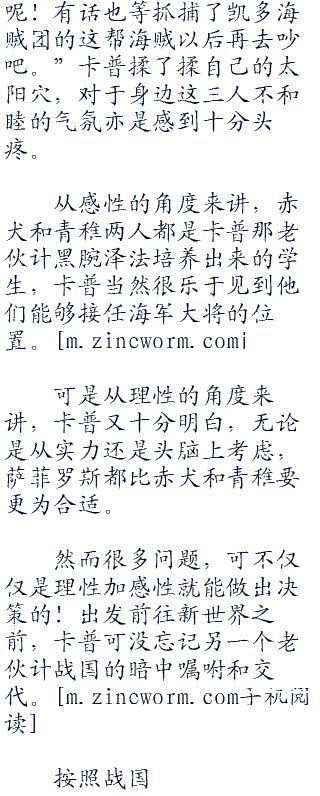 呢！有话也等抓捕了凯多海
贼团的这帮海贼以后再去吵
吧。”卡普揉了揉自己的太
阳穴，对于身边这三人不和
睦的气氛亦是感到十分头
疼。
从感性的角度来讲，赤
犬和青稚两人都是卡普那老
伙计黑腕泽法培养出来的学
生，卡普当然很乐于见到他
们能够接任海军大将的位
置。[m.zincworm.com]
可是从理性的角度来
讲，卡普又十分明白，无论
是从实力还是头脑上考虑，
萨菲罗斯都比赤犬和青稚要
更为合适。
然而很多问题，可不仅
仅是理性加感性就能做出决
策的！出发前往新世界之
前，卡普可没忘记另一个老
伙计战国的暗中嘱咐和交
代。[m.zincworm.com手机阅
读]
按照战国